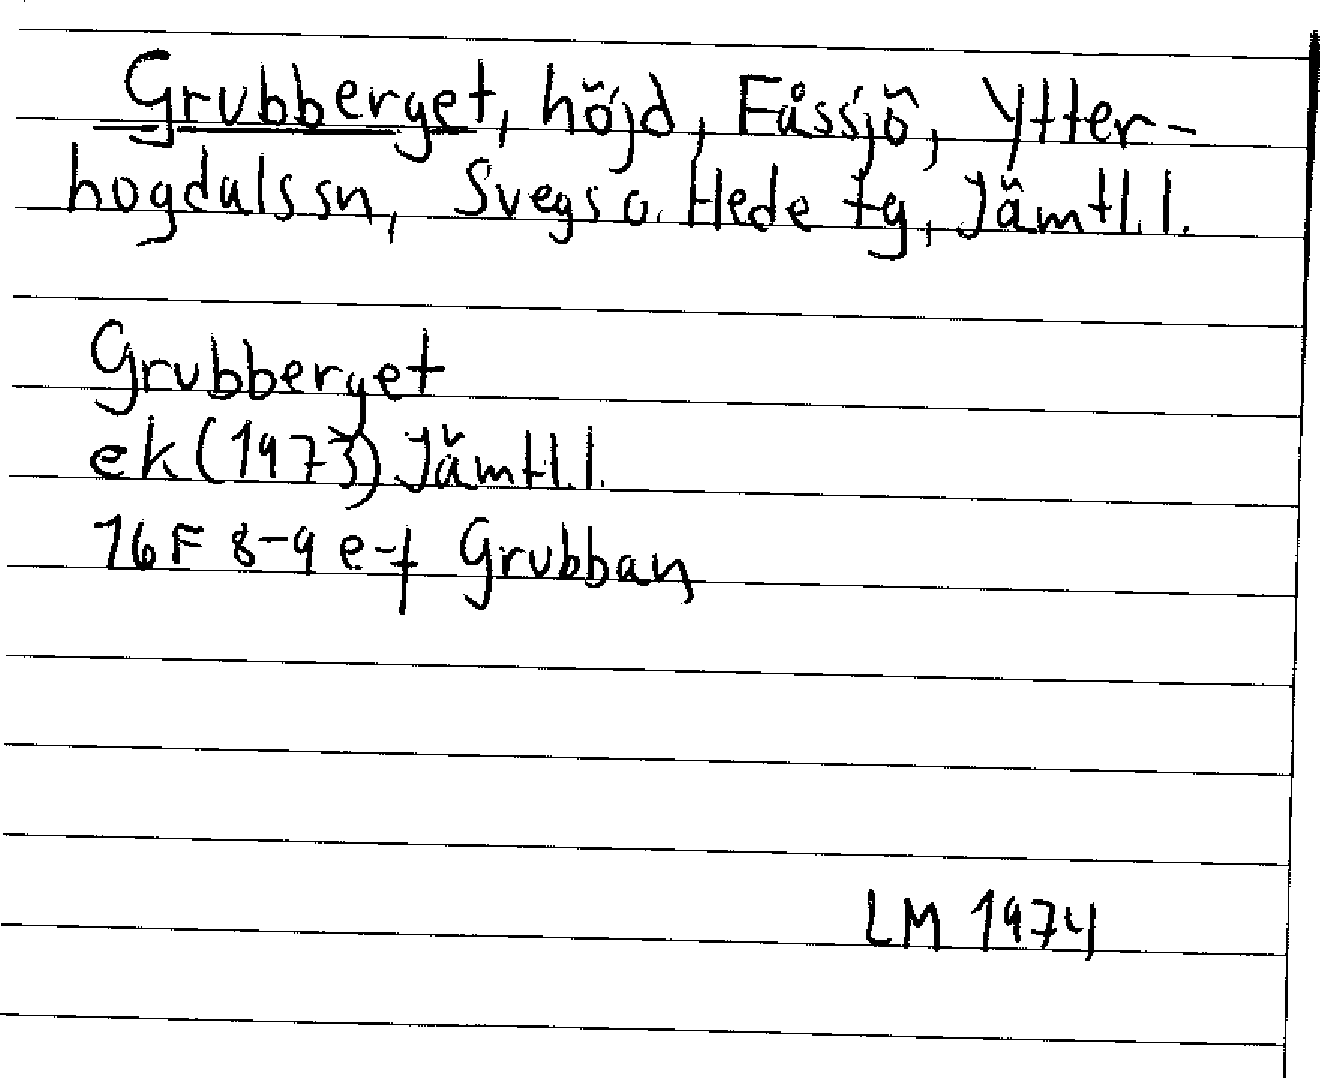 Grubberget, höjd, Fåssjö, Ytter-
hogdals sn, Svegs o. Hede tg, Jämtl.l.
Grubberget
ek (1973) Jämtl.l.
16F 8-9 e-f Grubban
LM 1974